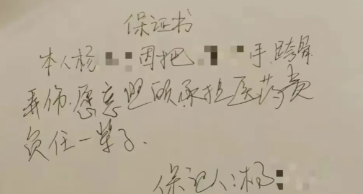 保证书
本人杨 因把 手跨骨
弄伤.愿意照顾承担医药费
负任一辈子.
保证人:杨